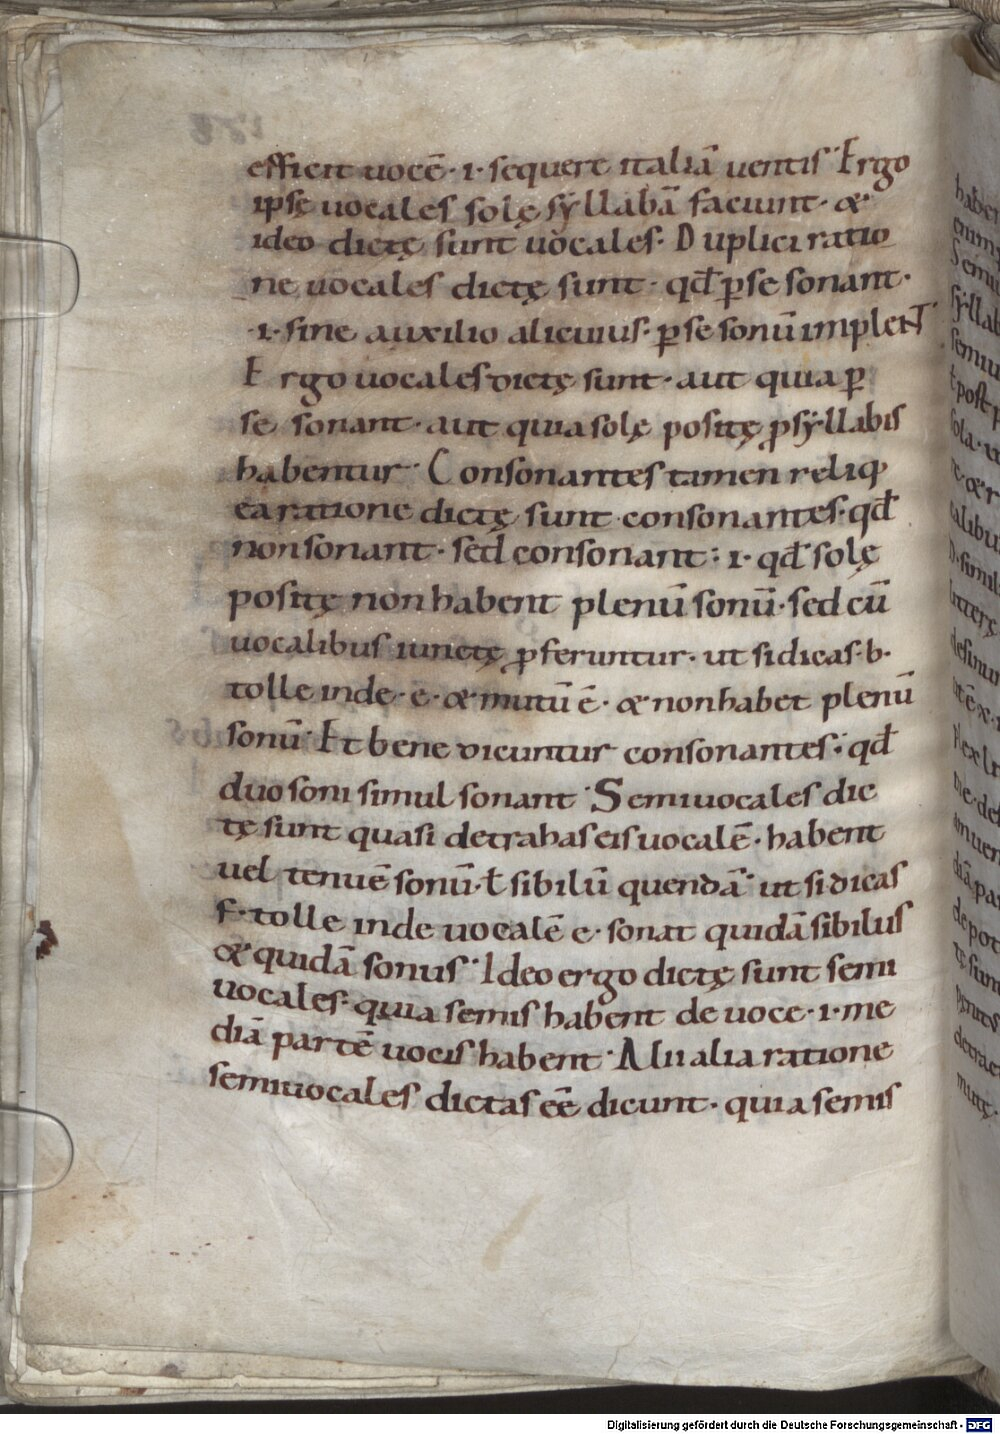 efficit uocē · i · sequere italiā uentis · Ergo
ipsę uocales solę syllabā faciunt · &
ideo dictę sunt uocales · Duplici ratio
ne uocales dictę sunt · qđ ꝑ se sonant ·
· i · sine auxilio alicuius · ꝑ se sonū implent ·
Ergo uocales dictę sunt · aut quia ꝑ
se sonant · aut quia solę positę ꝓ syllabis
habentur · Consonantes tamen reliqꝫ
ea ratione dictę sunt consonantes · qđ
non sonant · sed consonant : i · qđ solę
positę non habent plenū sonū · sed cū
uocalibus iunctę ꝓferuntur · ut si dicas · b ·
tolle inde · e · & mutū ē · & non habet plenū
sonū · Et bene dicuntur consonantes · qđ
duo soni simul sonant · Semiuocales dic
tę sunt quasi detrahas eis uocalē · habent
uel tenuē sonū · ł sibilū quendā · ut si dicas
f · tolle inde uocalē e · sonat quidā sibilus
& quidā sonus · Ideo ergo dictę sunt semi
uocales · quia semis habent de uoce · i · me
diā partē uocis habent · Alii alia ratione
semiuocales dictas eē dicunt · quia semis
Digitalisierung gefördert durch die Deutsche Forschungsgemeinschaft - DFG